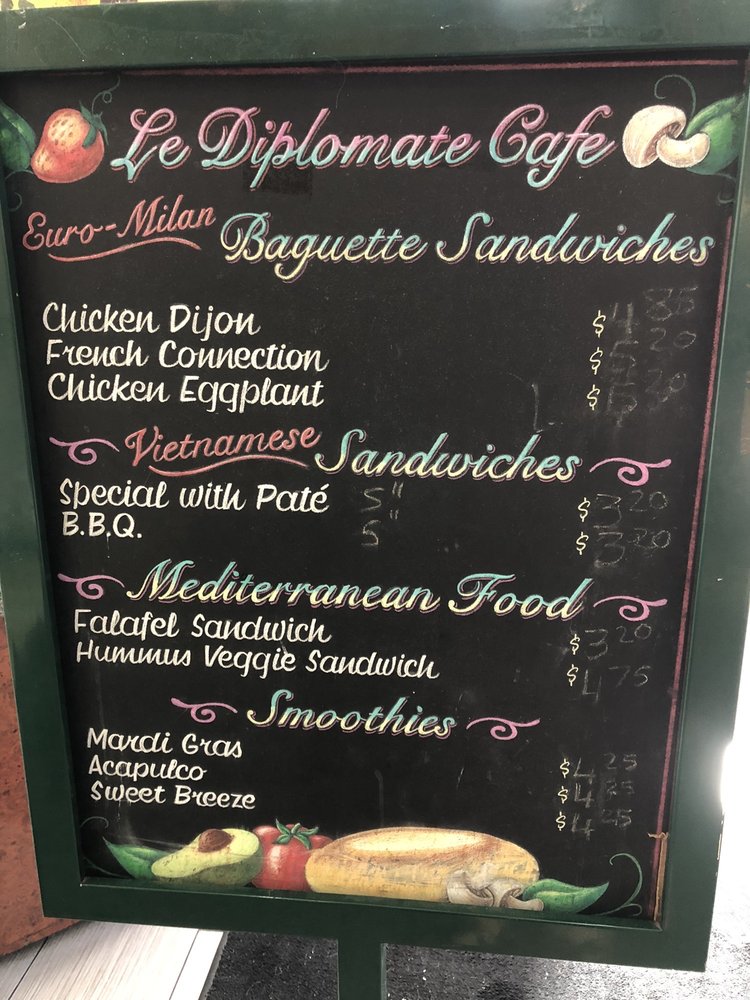 Le Diplomate Cafe
Euro-Milan Baguette Sandwiches
Chicken Dijon $4.85
French Connection $ 20
Chicken Eggplant $
Vietnamese Sandwiches
Special with Paté 5" $3 20
B.B.Q. 5" $3 20
Mediterranean Food
Falafel Sandwich $3 20
Hummus Veggie Sandwich $4 75
Smoothies
Mardi Gras $4 25
Acapulco $4 25
Sweet Breeze $4 25